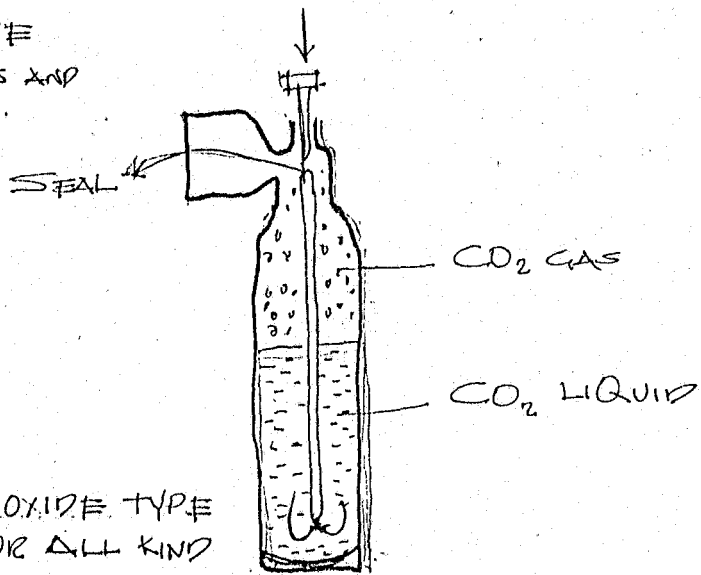 S AND
SEAL
CO₂ GAS
CO₂ LIQUID
OXIDE TYPE
OR ALL KIND